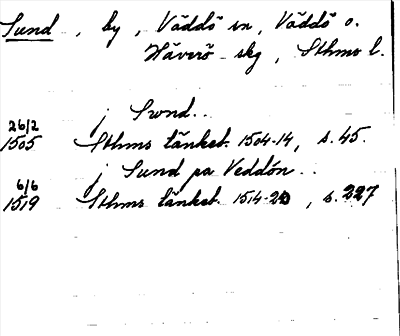 Sund, by, Väddö sn, Väddö o.
Häverö skg, Sthms l.
j Swnd..
26/2
1505 Sthms tänkeb. 1504-14, s. 45.
j Sund pa Veddön..
6/6
1519 Sthms tänkeb. 1514-20, s. 227